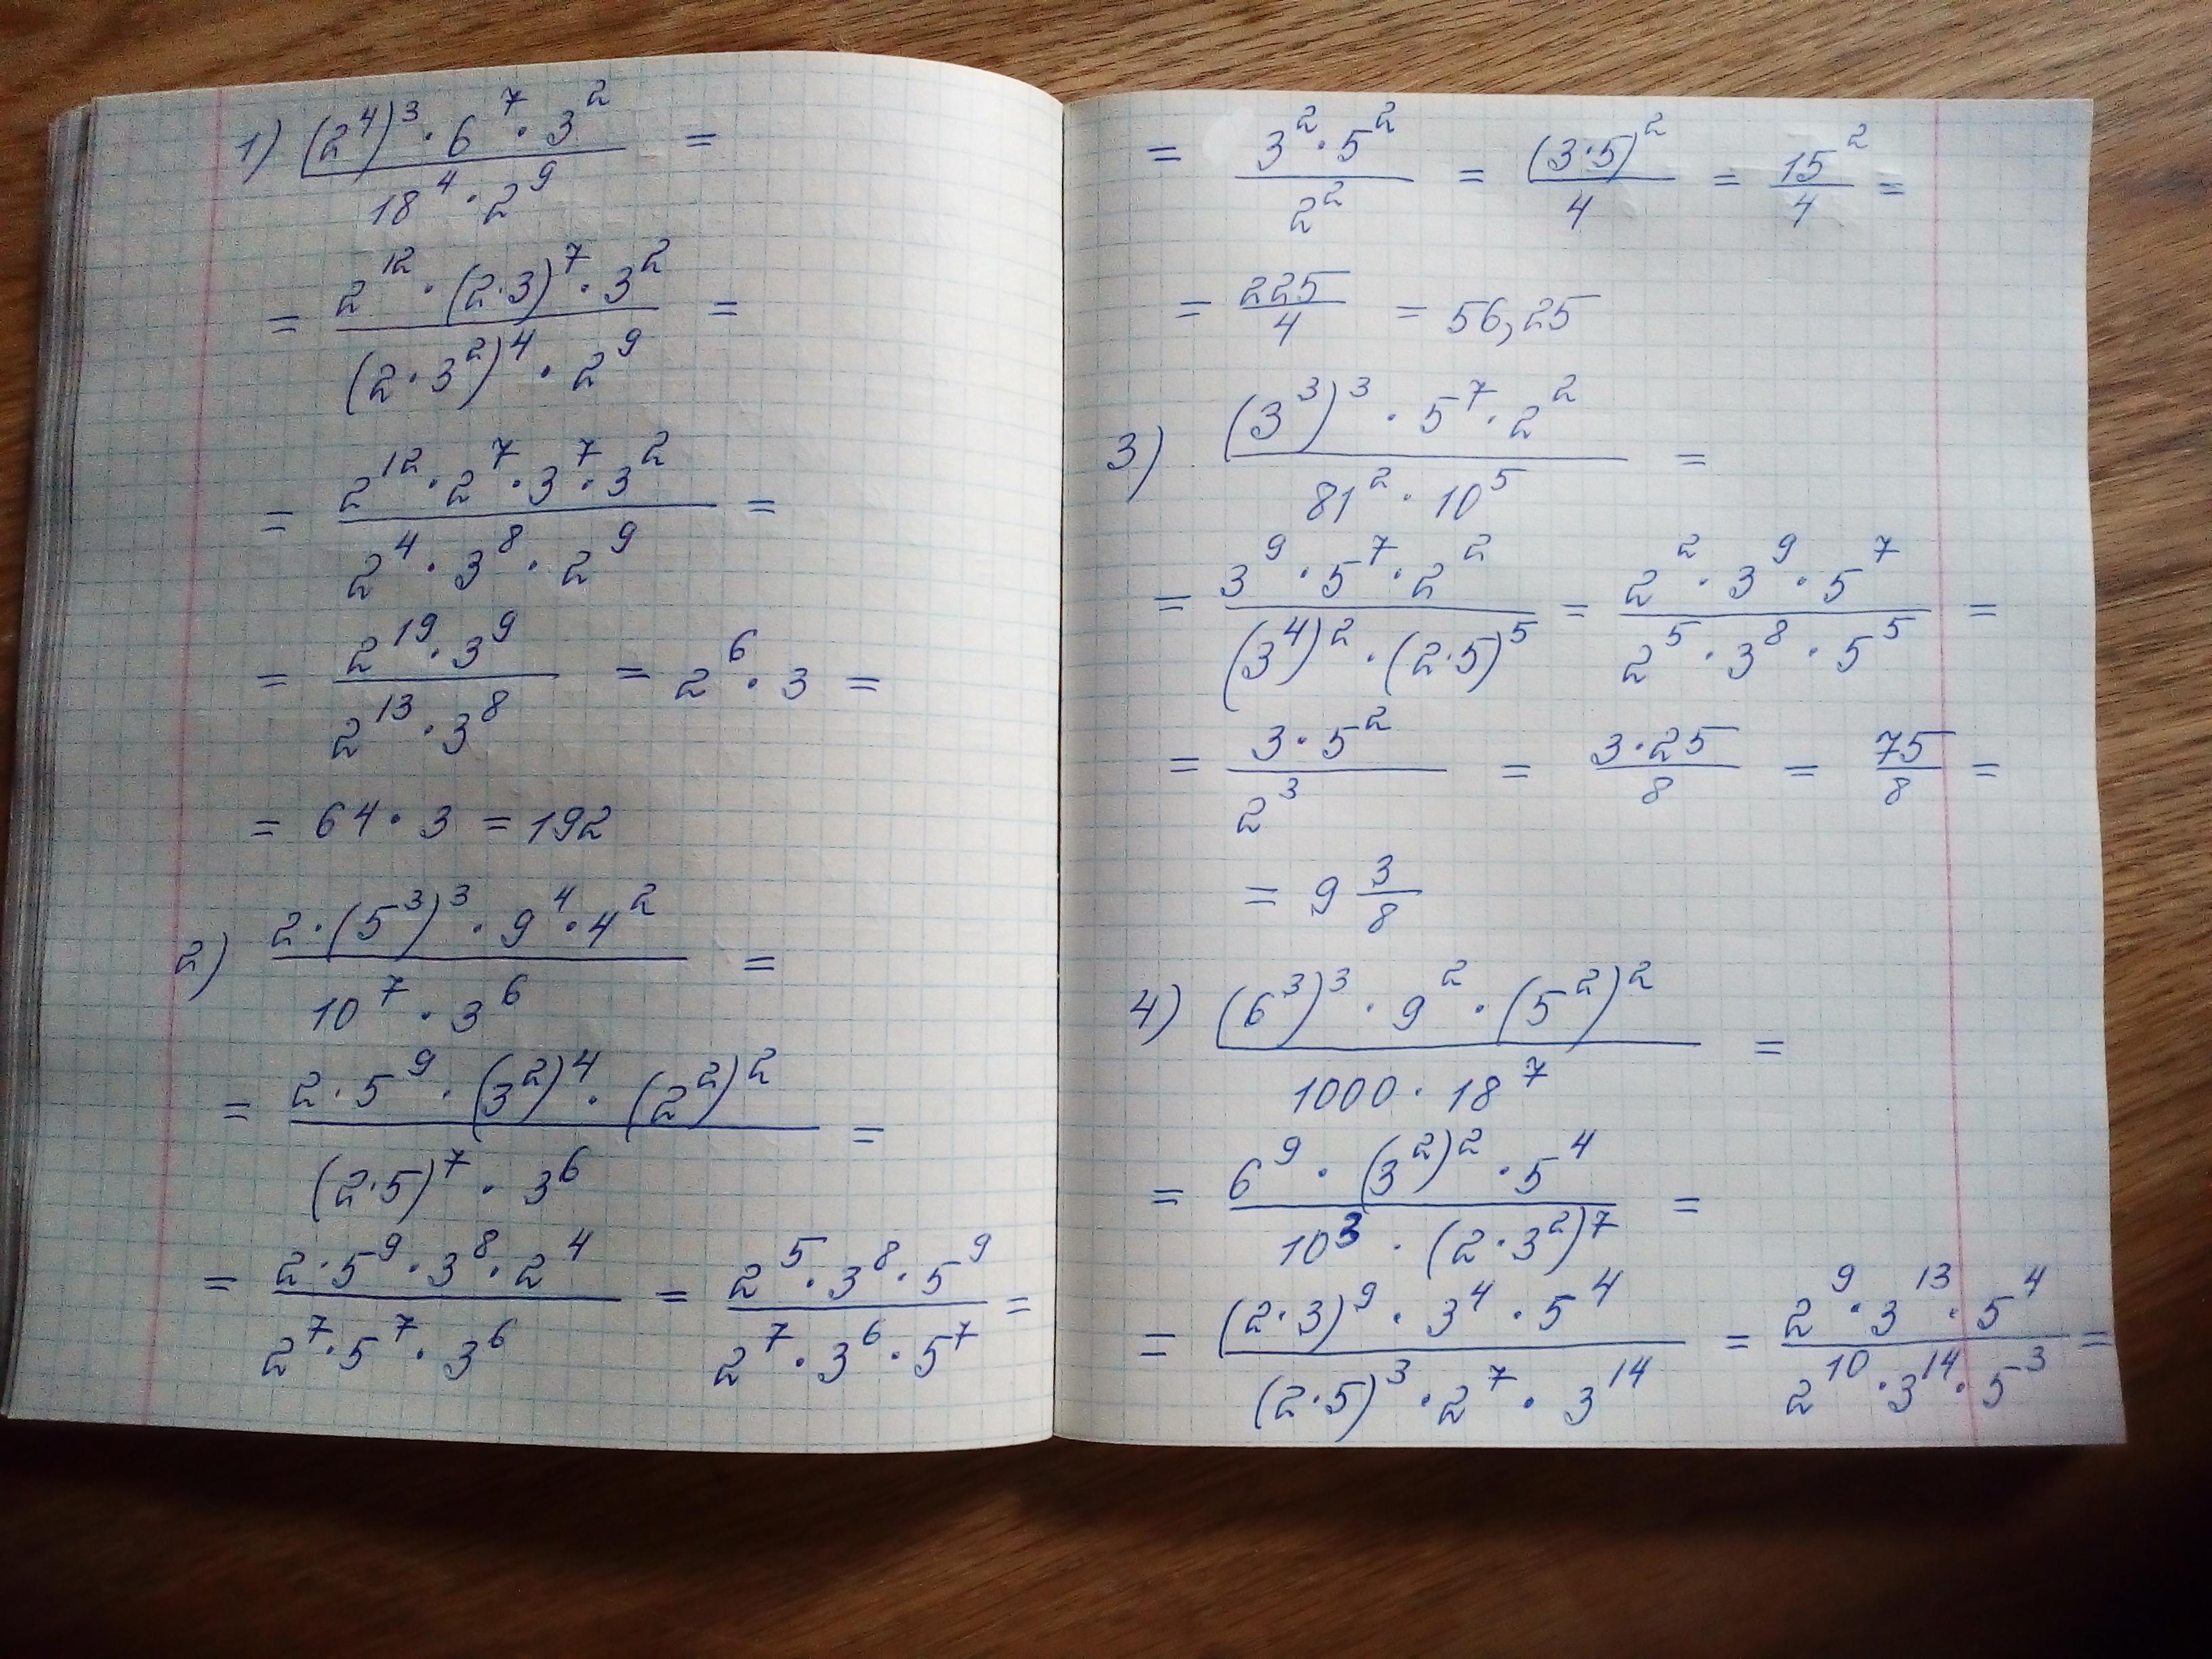 1) ((2^4)^3 · 6^7 · 3^2) / (18^4 · 2^9) =
= (2^12 · (2·3)^7 · 3^2) / ((2 · 3^2)^4 · 2^9) =
= (2^12 · 2^7 · 3^7 · 3^2) / (2^4 · 3^8 · 2^9) =
= (2^19 · 3^9) / (2^13 · 3^8) = 2^6 · 3 =
= 64 · 3 = 192
2) (2 · (5^3)^3 · 9^4 · 4^2) / (10^7 · 3^6) =
= (2 · 5^9 · (3^2)^4 · (2^2)^2) / ((2·5)^7 · 3^6) =
= (2 · 5^9 · 3^8 · 2^4) / (2^7 · 5^7 · 3^6) = (2^5 · 3^8 · 5^9) / (2^7 · 3^6 · 5^7) =
= (3^2 · 5^2) / 2^2 = (3·5)^2 / 4 = 15^2 / 4 =
= 225 / 4 = 56,25
3) ((3^3)^3 · 5^7 · 2^2) / (81^2 · 10^5) =
= (3^9 · 5^7 · 2^2) / ((3^4)^2 · (2·5)^5) = (2^2 · 3^9 · 5^7) / (2^5 · 3^8 · 5^5) =
= (3 · 5^2) / 2^3 = (3 · 25) / 8 = 75 / 8 =
= 9 3/8
4) ((6^3)^3 · 9^2 · (5^2)^2) / (1000 · 18^7) =
= (6^9 · (3^2)^2 · 5^4) / (10^3 · (2 · 3^2)^7) =
= ((2·3)^9 · 3^4 · 5^4) / ((2·5)^3 · 2^7 · 3^14) = (2^9 · 3^13 · 5^4) / (2^10 · 3^14 · 5^3) =